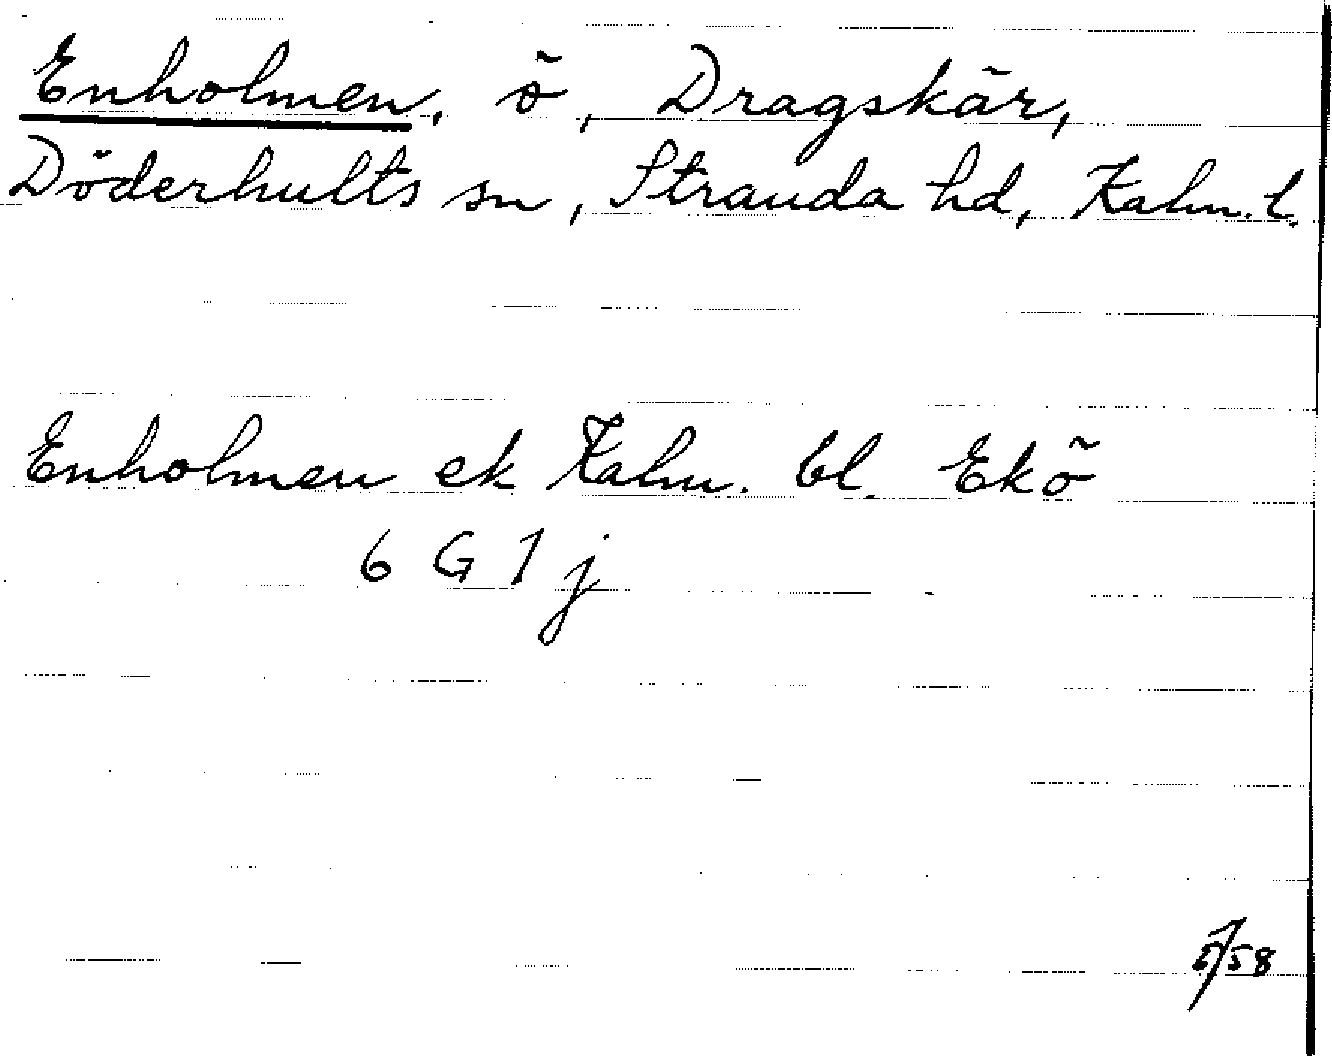 Enholmen, ö, Dragskär,
Döderhults sn, Stranda hd, Kalm. l.
Enholmen ek Kalm. bl. Ekö
6 G 1 j